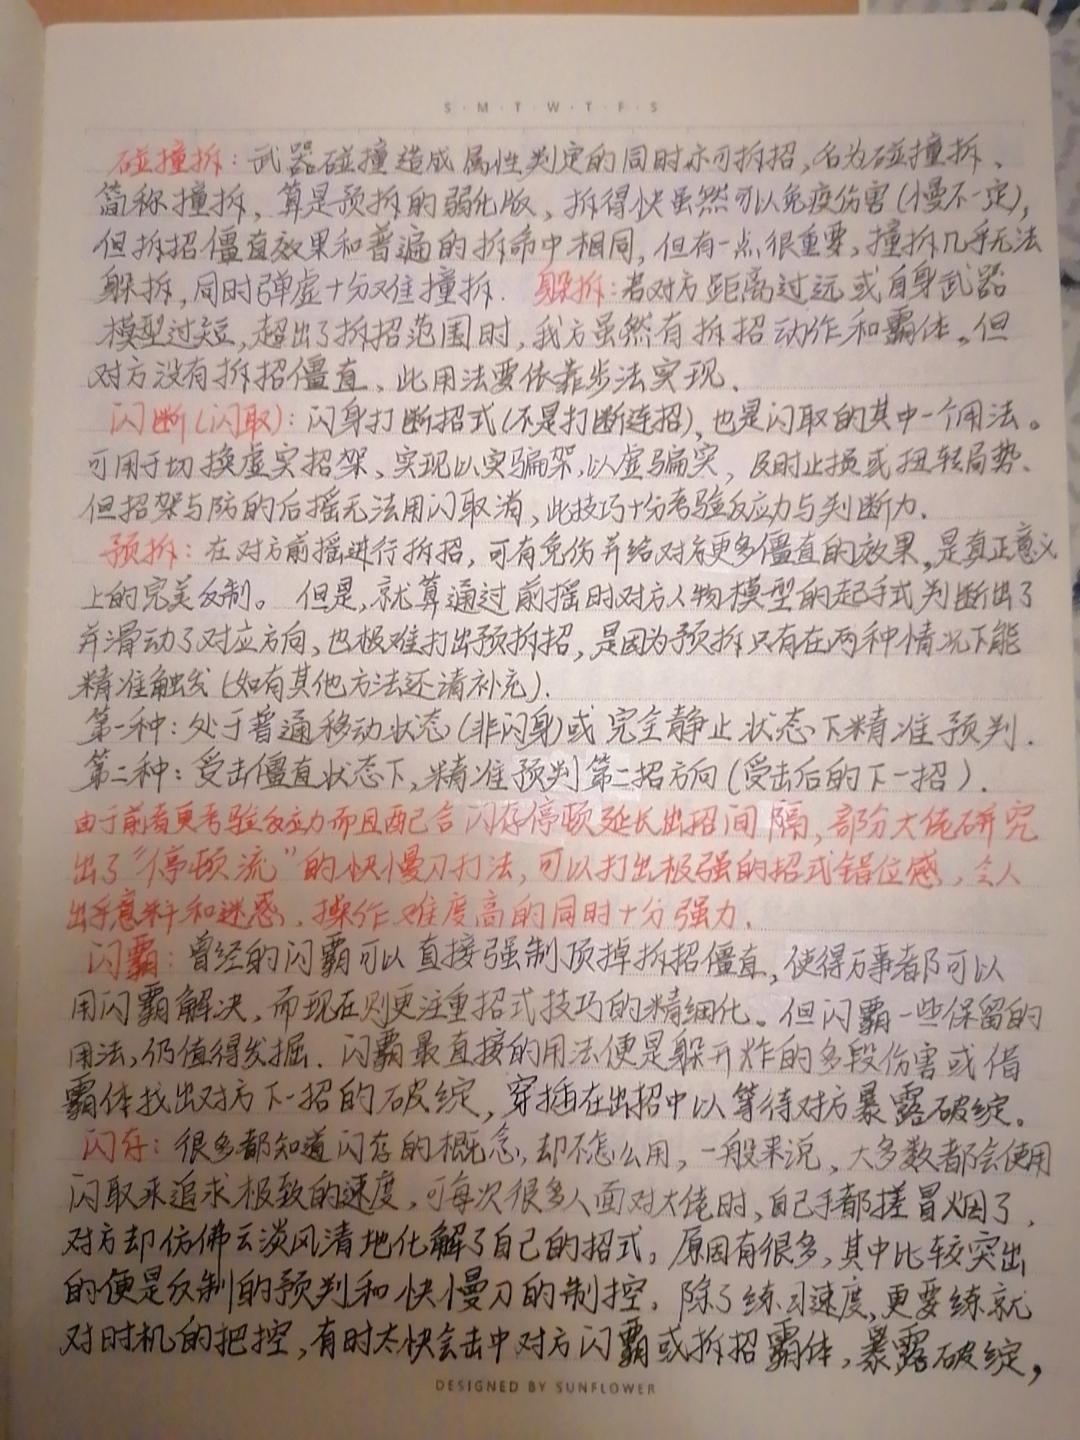 S·M·T·W·T·F·S
碰撞拆：武器碰撞造成属性判定的同时亦可拆招，名为碰撞拆、
简称撞拆，算是预拆的弱化版，拆得快虽然可以免疫伤害(慢不一定)，
但拆招僵直效果和普遍的拆命中相同，但有一点很重要，撞拆几乎无法
躲拆，同时弹虚十分难撞拆. 躲拆：若对方距离过远或自身武器
模型过短，超出了拆招范围时，我方虽然有拆招动作和霸体，但
对方没有拆招僵直、此用法要依靠步法实现.
闪断(闪取)：闪身打断招式(不是打断连招)，也是闪取的其中一个用法。
可用于切换虚实招架、实现以实骗架，以虚骗实，及时止损或扭转局势、
但招架与防的后摇无法用闪取消，此技巧十分考验反应力与判断力.
预拆：在对方前摇进行拆招，可有免伤并给对方更多僵直的效果，是真正意义
上的完美反制。 但是，就算通过前摇时对方人物模型的起手式判断出了
并滑动了对应方向，也极难打出预拆招，是因为预拆只有在两种情况下能
精准触发(如有其他方法还请补充).
第一种：处于普通移动状态(非闪身)或完全静止状态下精准预判.
第二种：受击僵直状态下，精准预判第二招方向(受击后的下一招).
由于前者更考验反应力而且配合闪存停顿延长出招间隔，部分大佬研究
出了“停顿流”的快慢刀打法，可以打出极强的招式错位感，令人
出乎意料和迷惑，操作难度高的同时十分强力.
闪霸：曾经的闪霸可以直接强制顶掉拆招僵直，使得万事都可以
用闪霸解决，而现在则更注重招式技巧的精细化。但闪霸一些保留的
用法，仍值得发掘. 闪霸最直接的用法便是躲开炸的多段伤害或借
霸体找出对方下一招的破绽，穿插在出招中以等待对方暴露破绽。
闪存：很多都知道闪存的概念，却不怎么用，一般来说，大多数都会使用
闪取来追求极致的速度，可每次很多人面对大佬时，自己手都搓冒烟了，
对方却仿佛云淡风清地化解了自己的招式，原因有很多，其中比较突出
的便是反制的预判和快慢刀的制控，除了练习速度，更要练就
对时机的把控，有时太快会击中对方闪霸或拆招霸体，暴露破绽，
DESIGNED BY SUNFLOWER